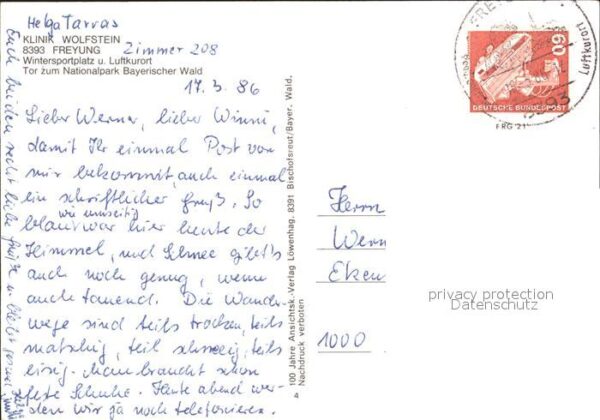 Helga Tarras
KLINIK WOLFSTEIN
8393 FREYUNG Zimmer 208
Wintersportplatz u. Luftkurort
Tor zum Nationalpark Bayerischer Wald
17.3.86
Lieber Werner, lieber Winni,
damit Ihr einmal Post von
mir bekommt, auch einmal
ein schriftlicher Gruß. So
blau war hier heute der
wie umseitig
Himmel, und Schnee gibt's
auch noch genug, wenn
auch tauend. Die Wander-
wege sind teils trocken, teils
matschig, teil schneeig, teils
eisig. Man braucht schon
feste Schuhe. Heute abend wer-
den wir ja noch telefonieren.
Euch beiden recht liebe Grüße u. bleibt gesund
100 Jahre Ansichtsk.-Verlag Löwenhag, 8391 Bischofsreut/Bayer. Wald.
Nachdruck verboten
4
60
DEUTSCHE BUNDESPOST
Luftkurort
8393
FRG 21
Herrn
Wern
Eken
1000
privacy protection
Datenschutz